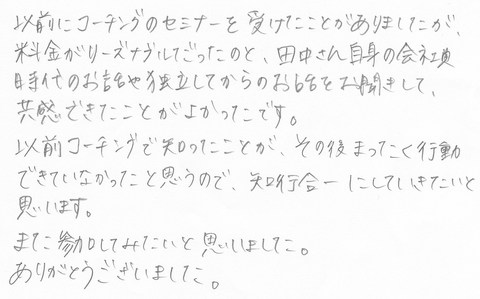 以前にコーチングのセミナーを受けたことがありましたが、
料金がリーズナブルでだったのと、田中さん自身の会社員
時代のお話や独立してからのお話をお聞きして、
共感できたことがよかったです。
以前コーチングで知ったことが、その後まったく行動
できていなかったと思うので、知行合一にしていきたいと
思います。
また参加してみたいと思いました。
ありがとうございました。